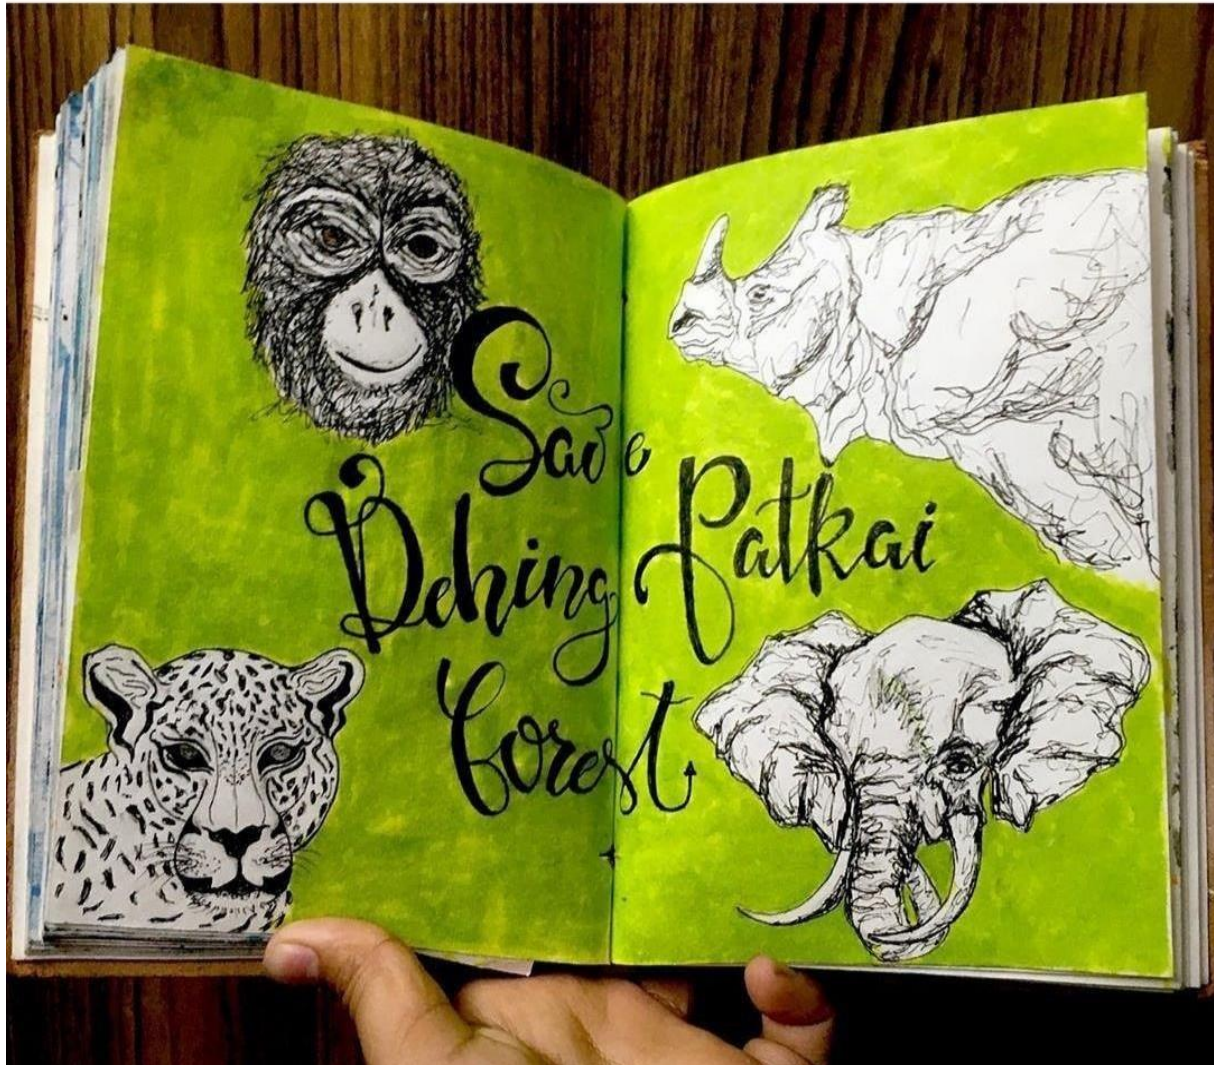 Save
Dehing Patkai
Forest